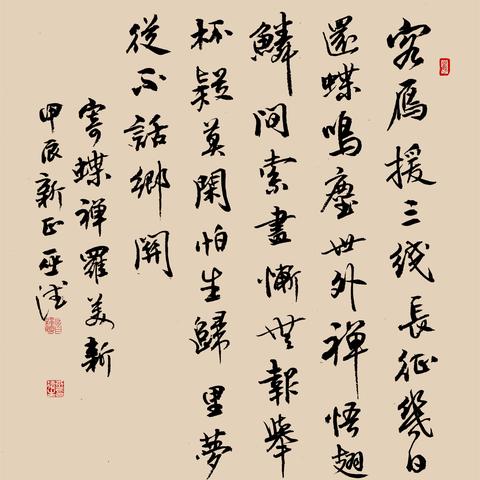 客雁援三线長征幾日
還蝶鳴塵世外禪悟翅
鱗间索畫慚無報舉
杯疑莫閑怕生歸里夢
從不話鄉關
寄蝶禅羅美新
甲辰新正